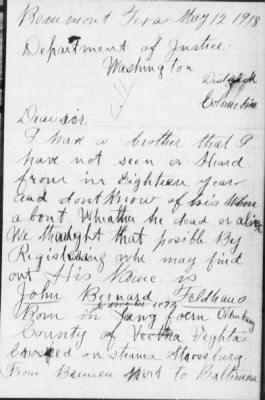 Beaumont Texas May 12 1918
Department of Justice
Washington
District
Columbia
Dear sir
I have a brother that I
have not seen or Heard
from in Eighteen year
and dont Know of his Where
about. Whether he dead or alive
We thought that posible By
Registering we may find
out His Name is
John Bernard Feldhaus
Born in Oldenburg
County of Vechta
crossed on
From Bremen Port to Baltimore